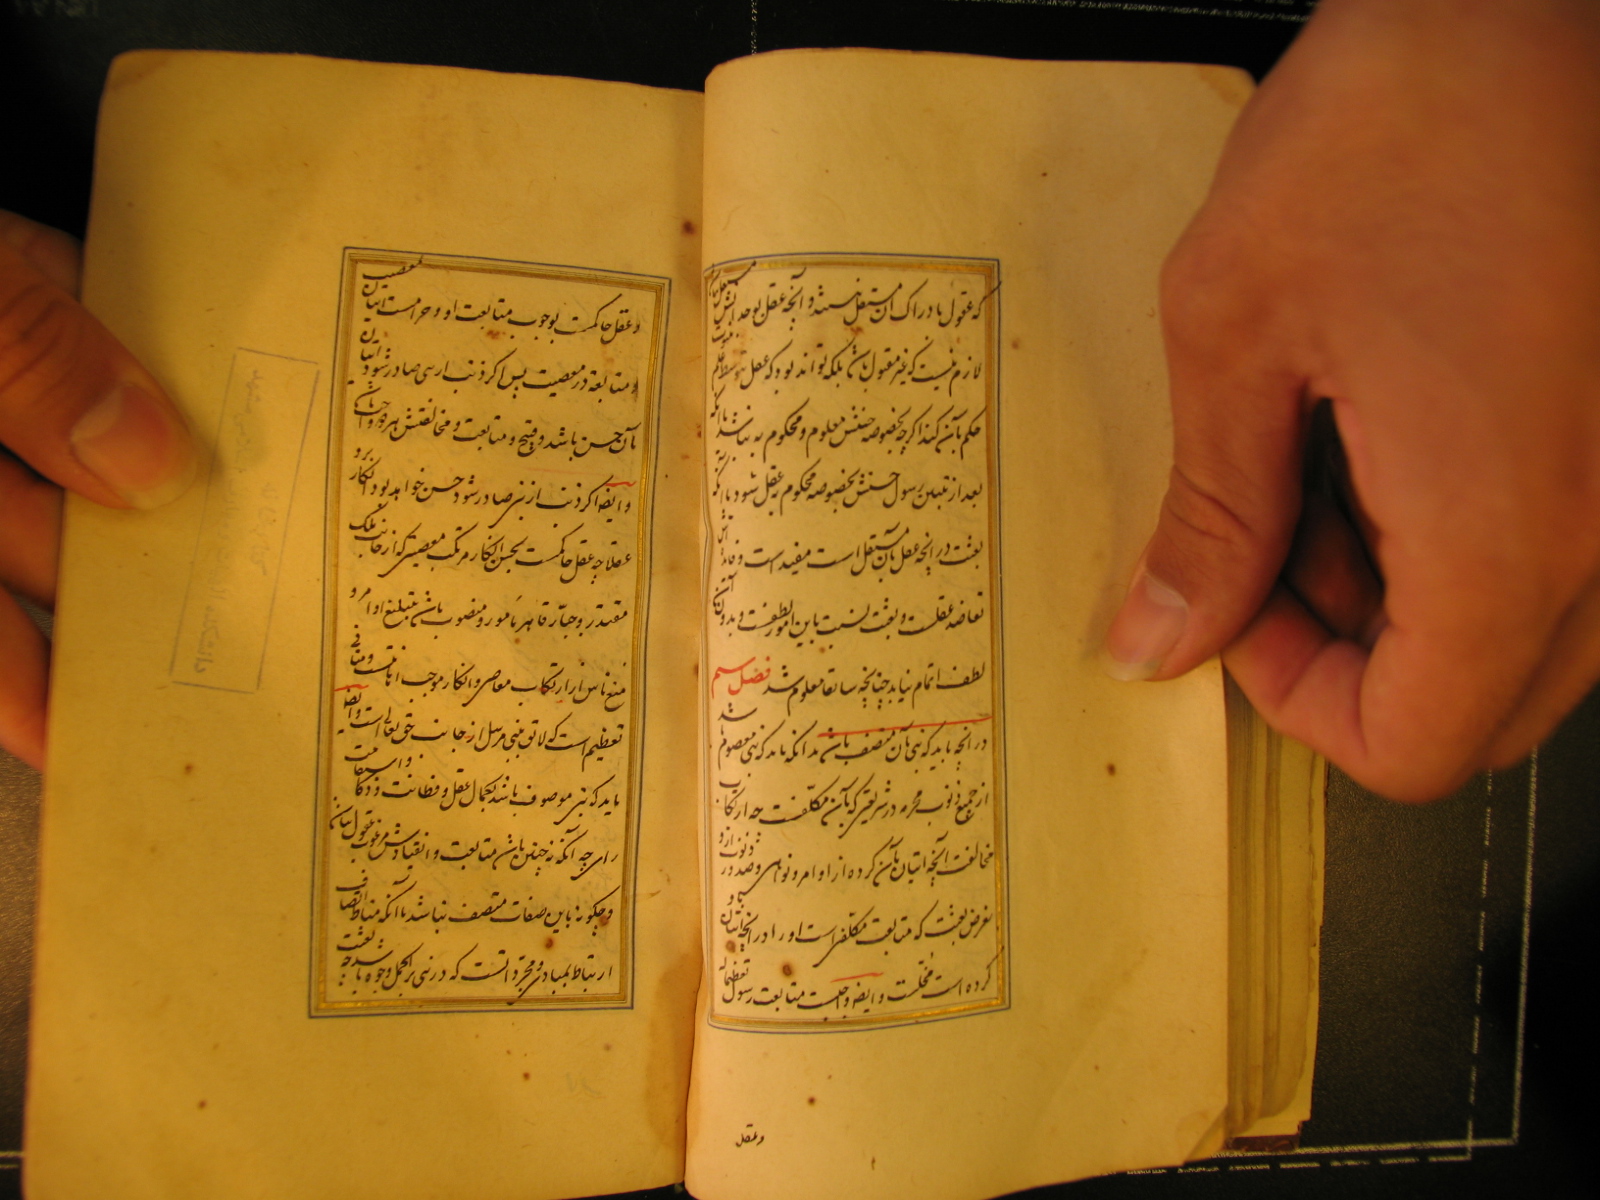 که عقول بادراک آن مستقل نیستند و آنچه عقل بوجدانش مستقل
لازم نیست که غیر معقول باشد بلکه تواند بود که عقل بتوسط علم
حکم بآن کند اگرچه بخصوصه حسنش معلوم و محکوم به نباشد با آنکه
بعد از تبیین رسول حسنش بخصوصه محکوم به عقل شود با آنکه
بعثت در آنچه عقل بآن مستقل است مفید است و فایده اش
تعاضد عقلست و بعثت نسبت باین امور لطفست و بدون آن
لطف اتمام نیابد چنانچه سابقا معلوم شد فصل سیم
در آنچه باید که نبی بآن متصف باشد بدانکه باید که نبی معصوم باشد
از جمیع ذنوب محرمه در شریعتی که بآن مکلفست چه ارتکاب
مخالفت آنچه اتیان بآن کرده از اوامر و نواهی و صدور ذنوب از او
بغرض بعثت که متابعت مکلفین است او را در آنچه اتیان بآن
کرده است مخلست و ایضا واجبست متابعت رسول تعظیما
و عقل
و عقل حاکمست بوجوب متابعت او و حرامست اتیان معصیت
و متابعة در معصیت پس اگر ذنب از نبی صادر شود اتیان
بآن حسن باشد و قبیح و متابعت و مخالفتش هر دو واجب
و ایضا اگر ذنب از نبی صادر شود حسن خواهد بود انکار برو
عقلا چه عقل حاکمست بحسن انکار مرتکب معصیتی که از جانب ملک
مقتدر و جبار قاهر مامور و منصوب باشد بتبلیغ اوامر و
منع ناس از ارتکاب معاصی و انکار موجب اهانتست و منافی
تعظیم است که لائق نبی مرسل از جانب حق تعالی است و ایضا
باید که نبی موصوف باشد بکمال عقل و فطانت و ذکا و استقامت
رای چه آنکه نه چنین باشد متابعت و انقیادش مرغوب عقول نباشد
و چگونه باین صفات متصف نباشد با آنکه مناط اتصاف
ارتباط بمبادی مجرداتست که در نبی بر اکمل وجوه باشد چه بعثت